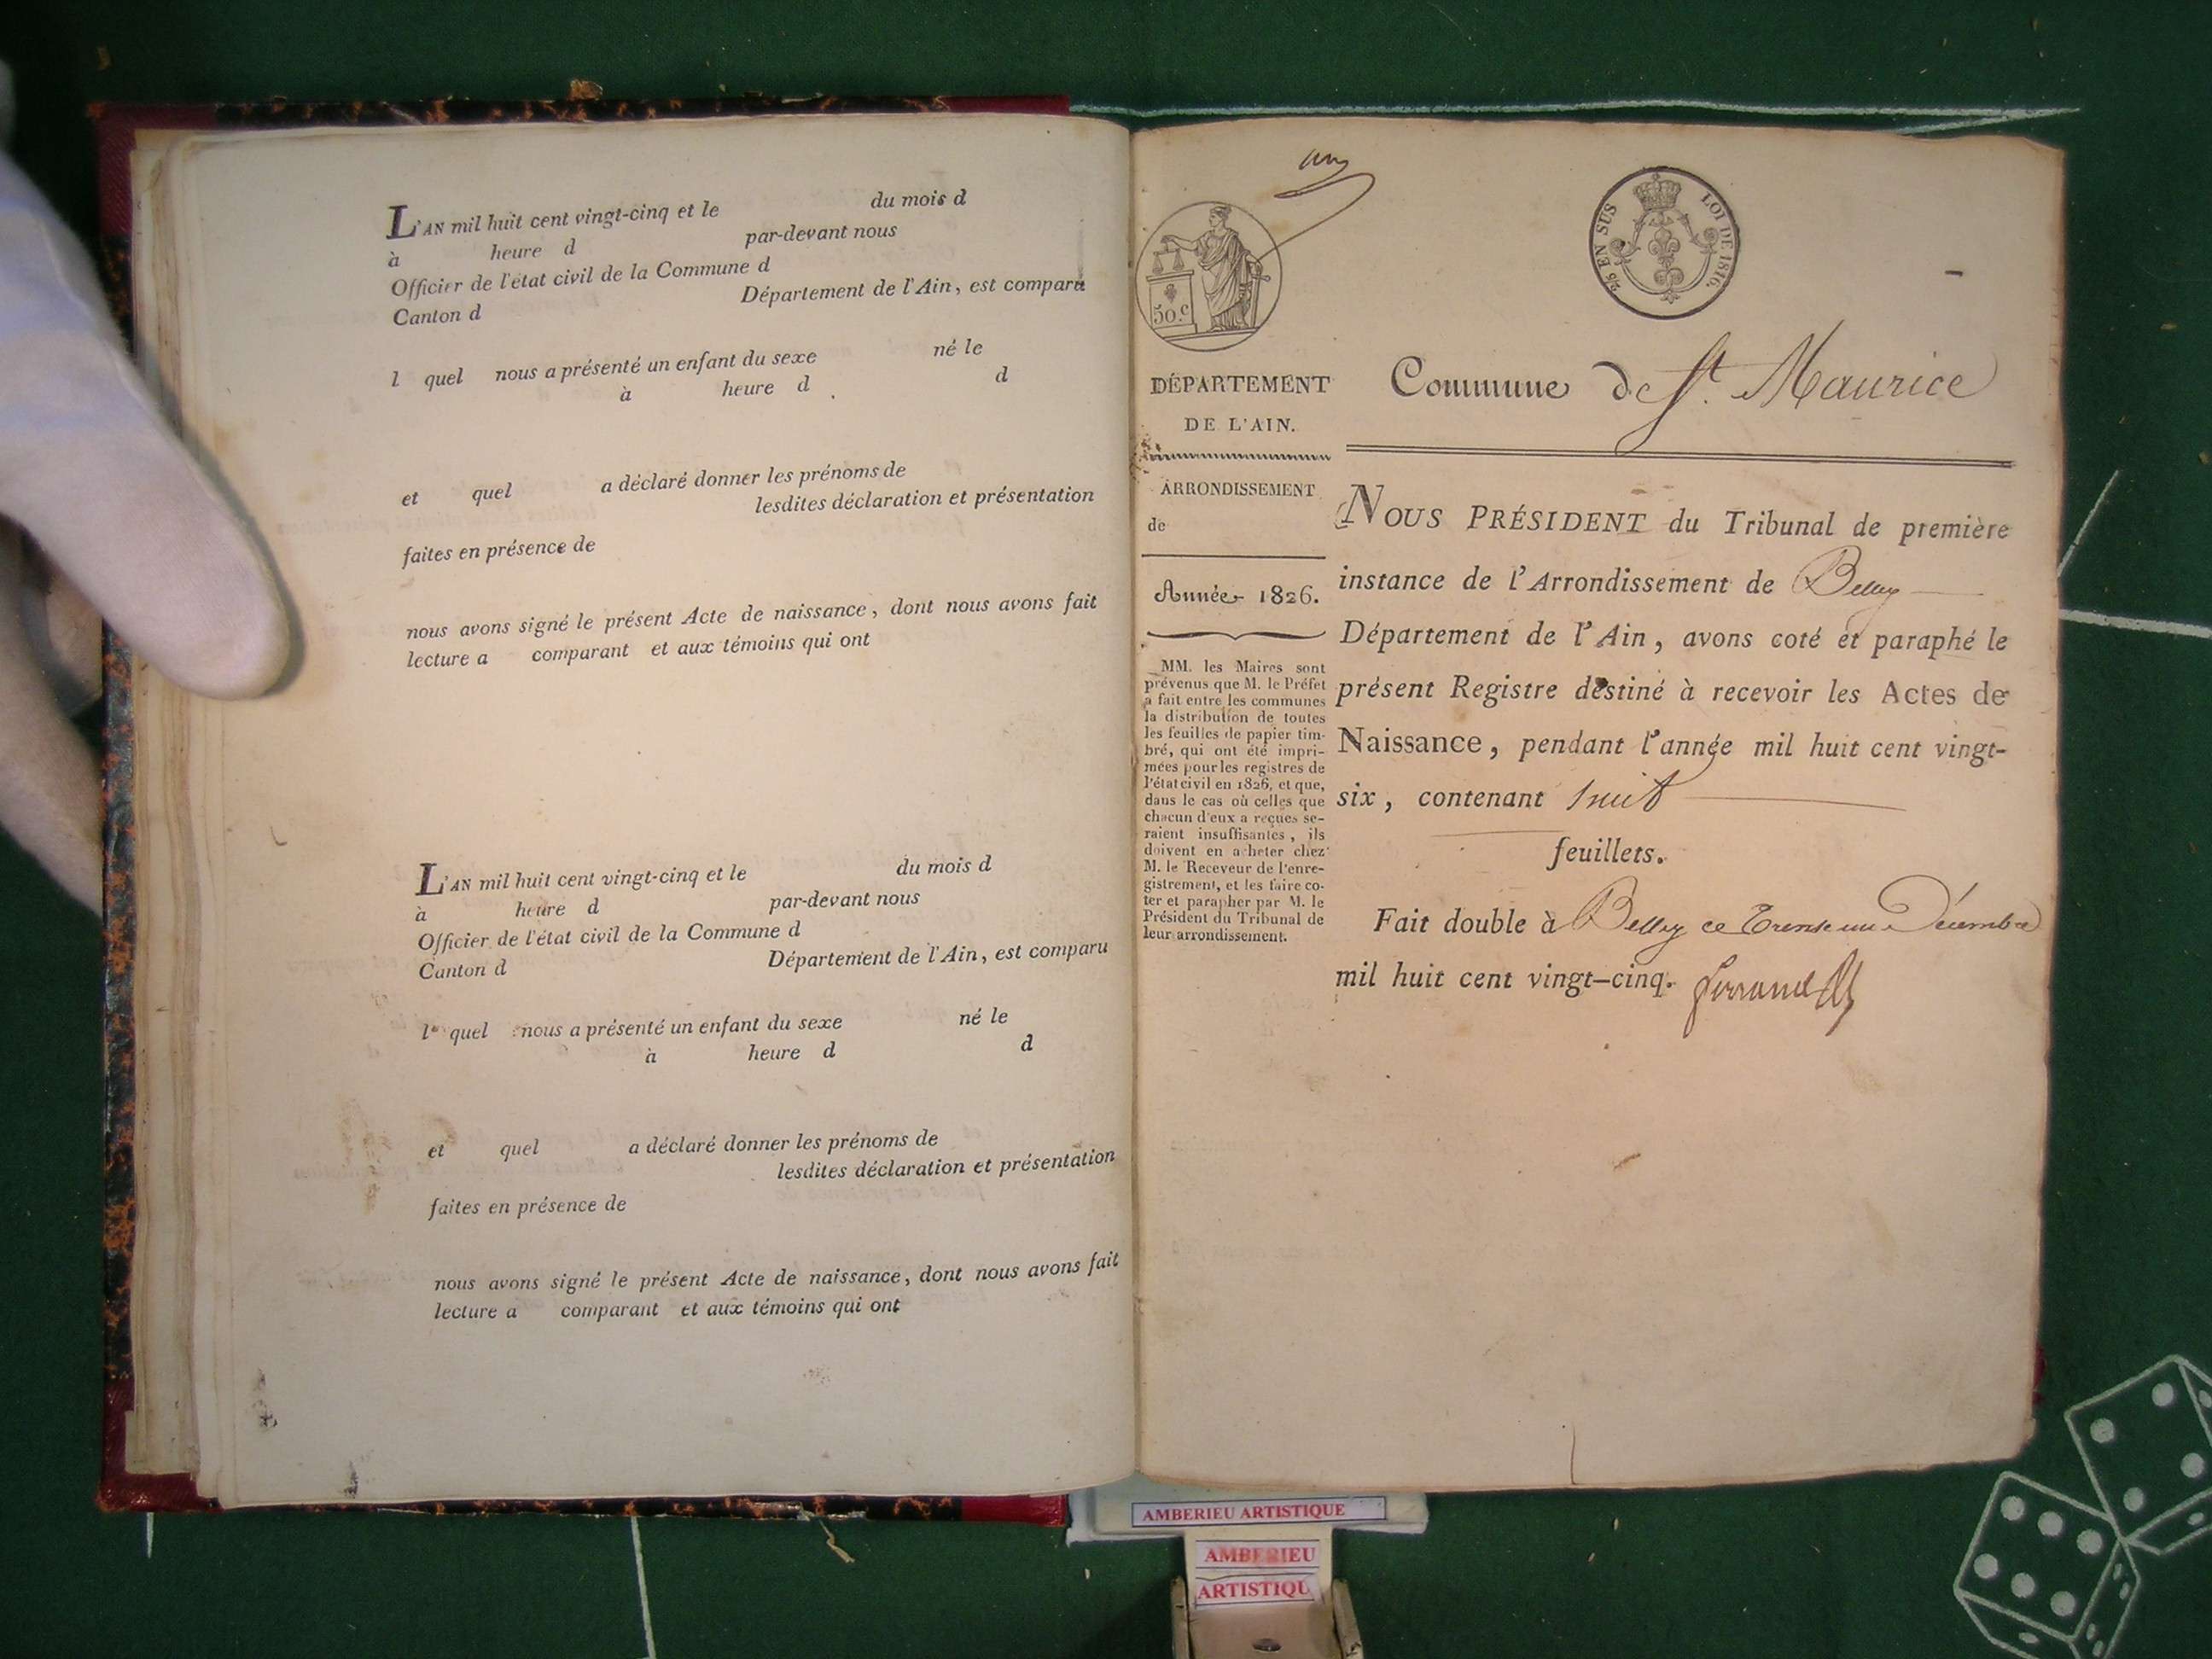 L'AN mil huit cent vingt-cinq et le du mois d
à heure d par-devant nous
Officier de l'état civil de la Commune d
Canton d Département de l'Ain, est comparu
l quel nous a présenté un enfant du sexe né le
à heure d d
et quel a déclaré donner les prénoms de
lesdites déclaration et présentation
faites en présence de
nous avons signé le présent Acte de naissance, dont nous avons fait
lecture a comparant et aux témoins qui ont
L'AN mil huit cent vingt-cinq et le du mois d
à heure d par-devant nous
Officier de l'état civil de la Commune d
Canton d Département de l'Ain, est comparu
l quel nous a présenté un enfant du sexe né le
à heure d d
et quel a déclaré donner les prénoms de
lesdites déclaration et présentation
faites en présence de
nous avons signé le présent Acte de naissance, dont nous avons fait
lecture a comparant et aux témoins qui ont
50.c
EN SUS LOI DE 1816.
DÉPARTEMENT
DE L'AIN.
ARRONDISSEMENT
de
Année 1826.
MM. les Maires sont
prévenus que M. le Préfet
a fait entre les communes
la distribution de toutes
les feuilles de papier tim-
bré, qui ont été impri-
mées pour les registres de
l'état civil en 1826, et que,
dans le cas où celles que
chacun d'eux a reçues se-
raient insuffisantes, ils
doivent en acheter chez
M. le Receveur de l'enre-
gistrement, et les faire co-
ter et parapher par M. le
Président du Tribunal de
leur arrondissement.
Commune de St. Maurice
NOUS PRÉSIDENT du Tribunal de première
instance de l'Arrondissement de Belley
Département de l'Ain, avons coté et paraphé le
présent Registre destiné à recevoir les Actes de
Naissance, pendant l'année mil huit cent vingt-
six, contenant huit
feuillets.
Fait double à Belley ce Trente un Décembre
mil huit cent vingt-cinq.
AMBERIEU ARTISTIQUE
AMBERIEU
ARTISTIQU